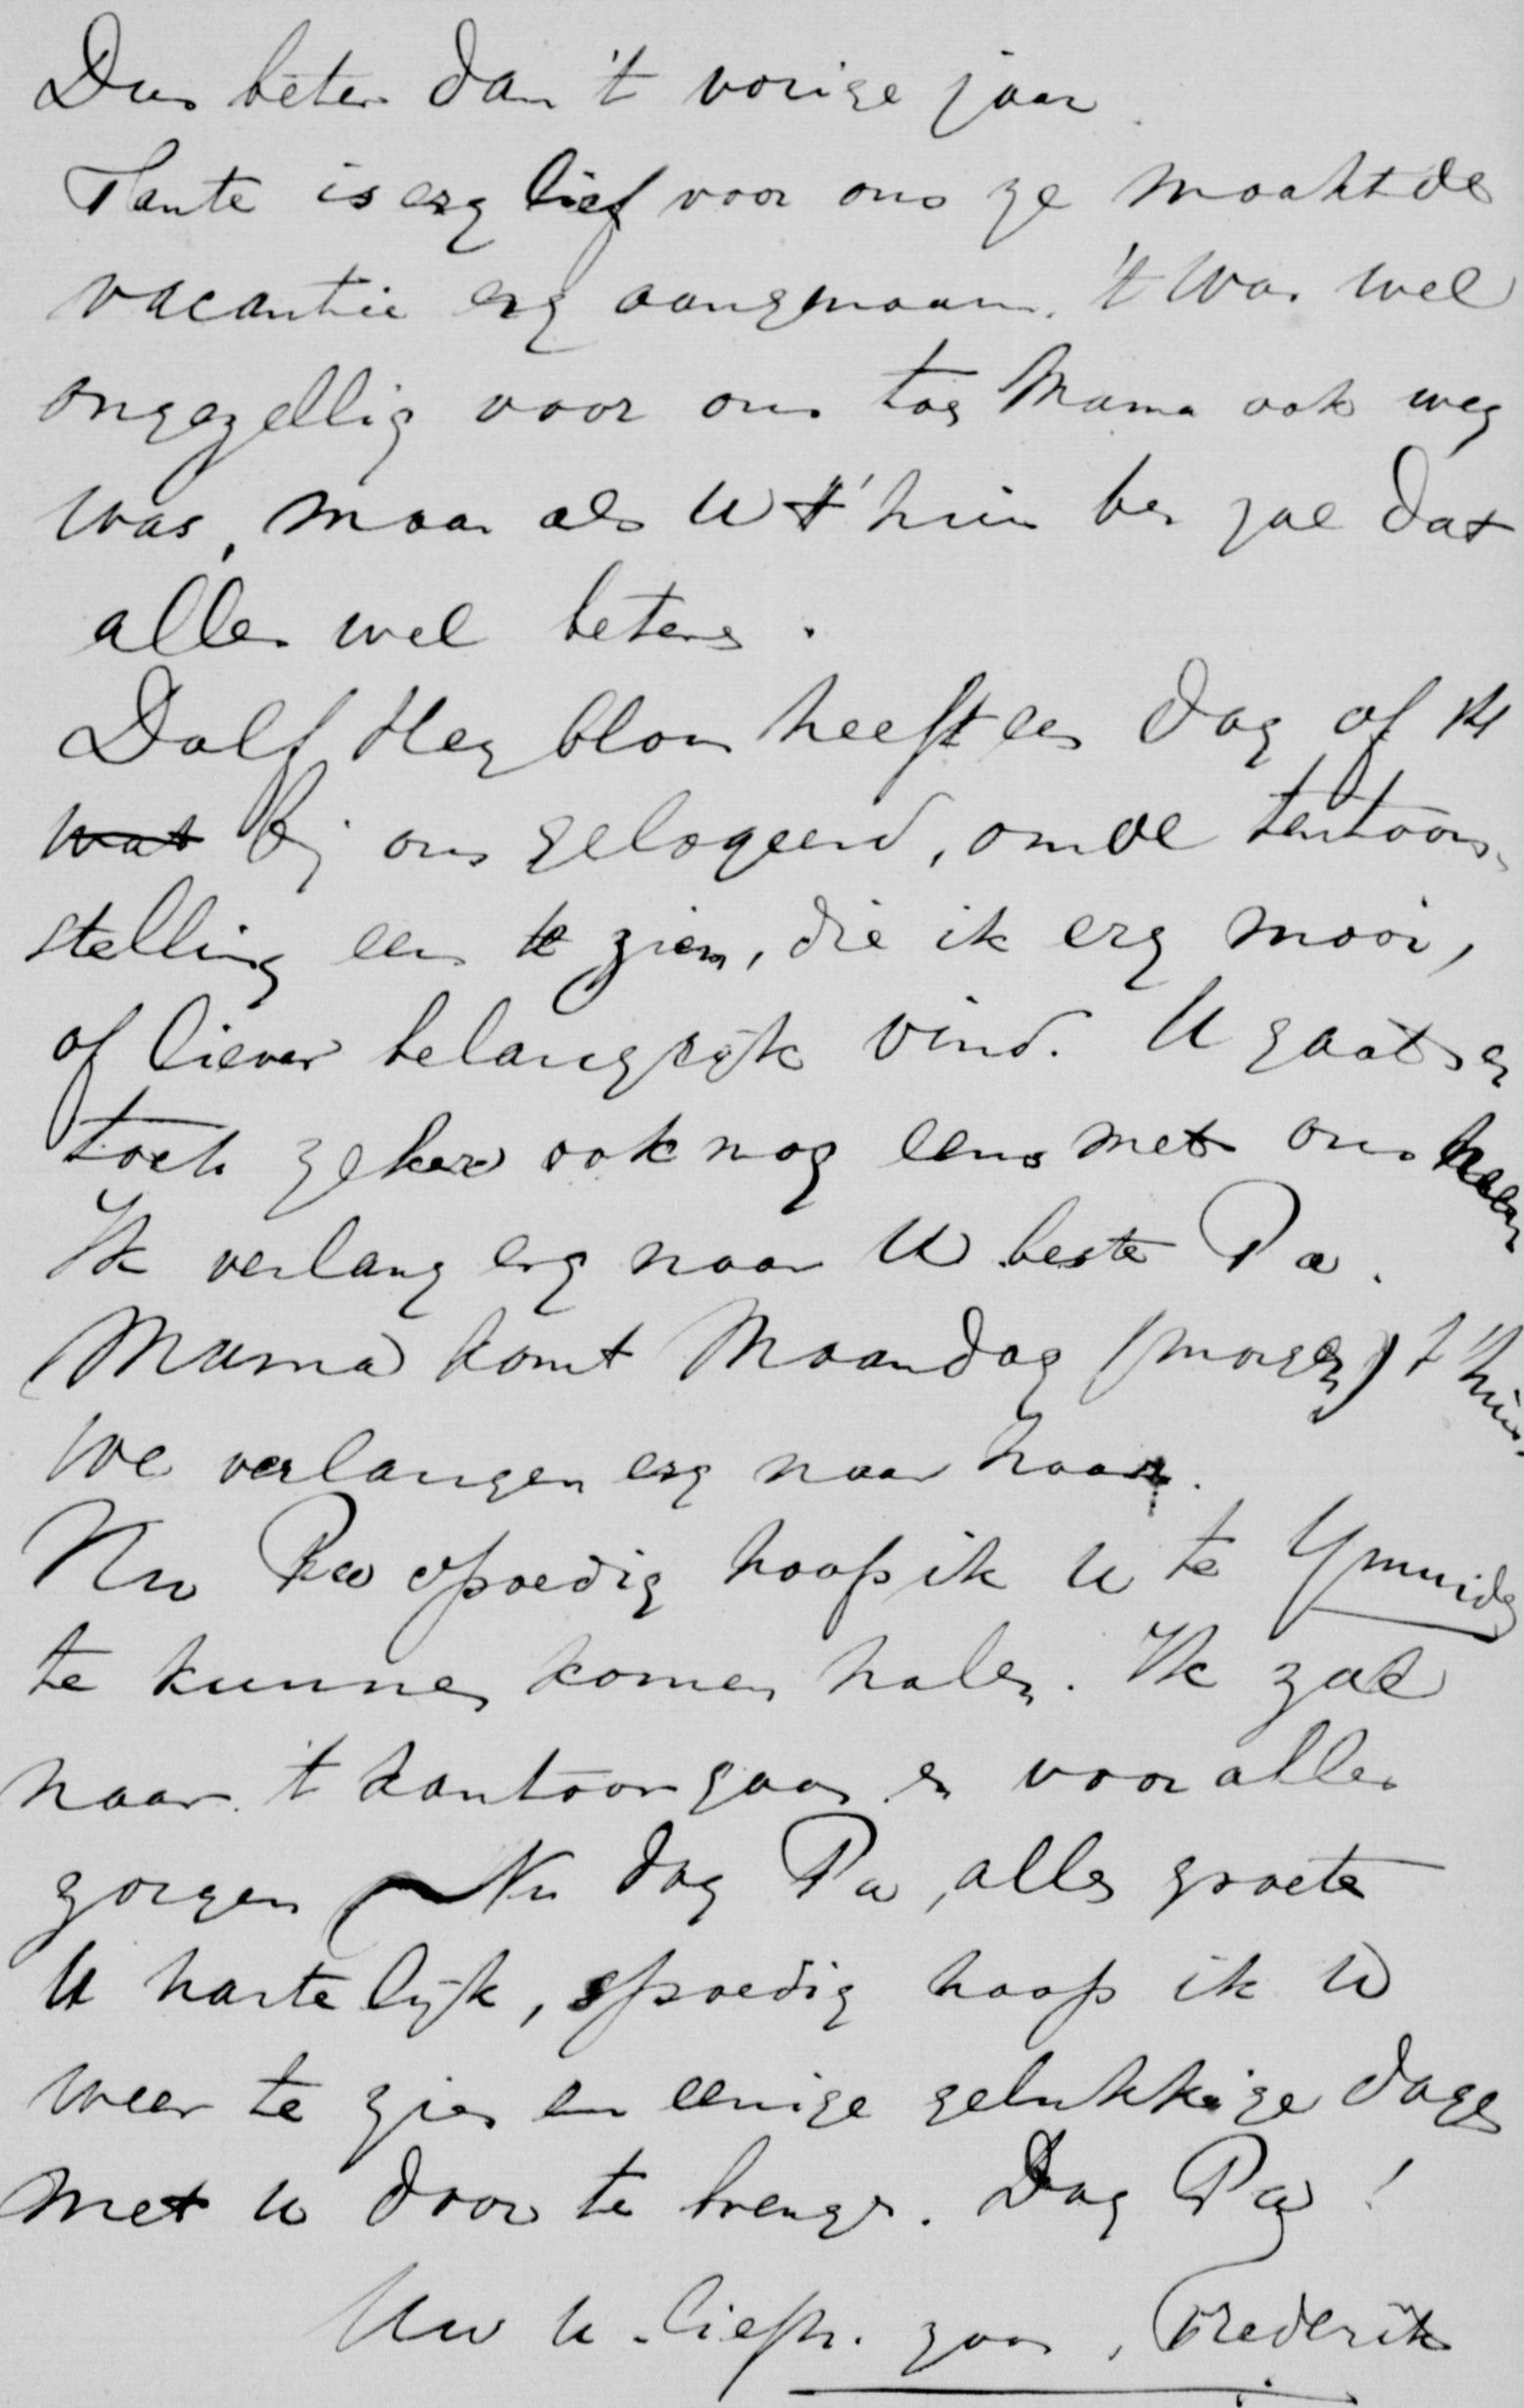 Dus beter dan 't vorige jaar.
Tante is erg lief voor ons ze maakt de
vacantie erg aangenaam. 't Was wel
ongezellig voor ons toe Mama ook weg
was, maar als U t'huis ben zal dat
alles wel beteren.
Dolf Heyblom heeft een dag of 14
wat bij ons gelogeerd, om de tentoon-
stelling eens te zien, die ik erg mooi,
of liever belangrijk vind. U gaat er
toch zeker ook nog eens met ons heen
Ik verlang erg naar U beste Pa.
Mama komt Maandag (morgen) t'huis.
We verlangen erg naar haar.
Nu Pa spoedig hoop ik U te Ymuiden
te kunnen komen halen. Ik zal
naar 't kantoor gaan en voor alles
zorgen Nu dag Pa, alles groete
U hartelijk, spoedig hoop ik U
weer te zien en eenige gelukkige dagen
met U door te brengen. Dag Pa!
Uw U. liefh. zoon, Frederik